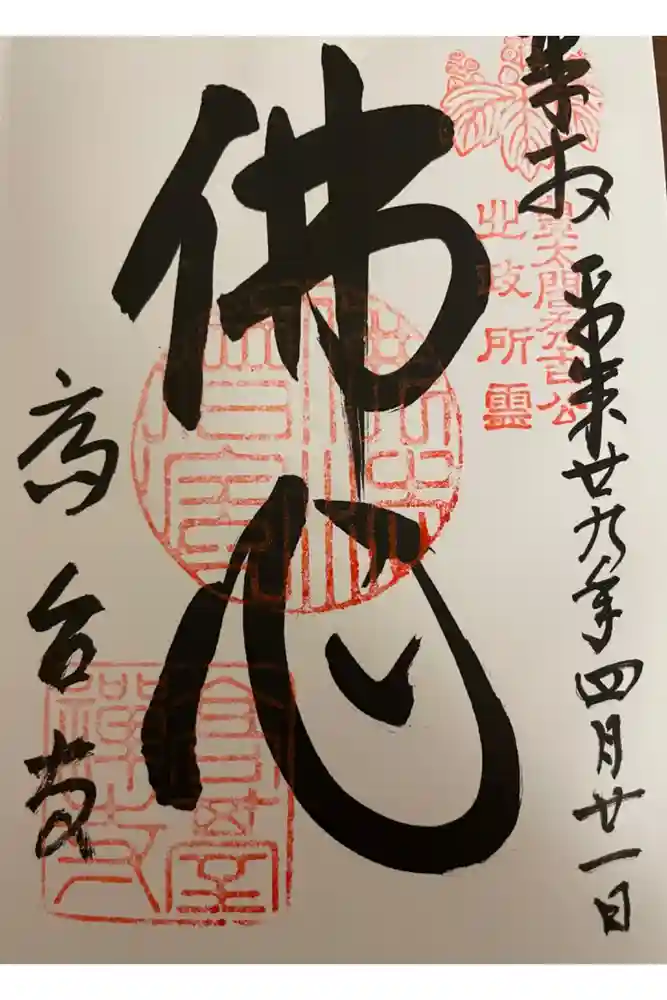 奉拝 平成廿九年四月廿一日
豊太閤秀吉公
北政所靈
佛心
佛法僧寶
高台寺
高臺禪寺